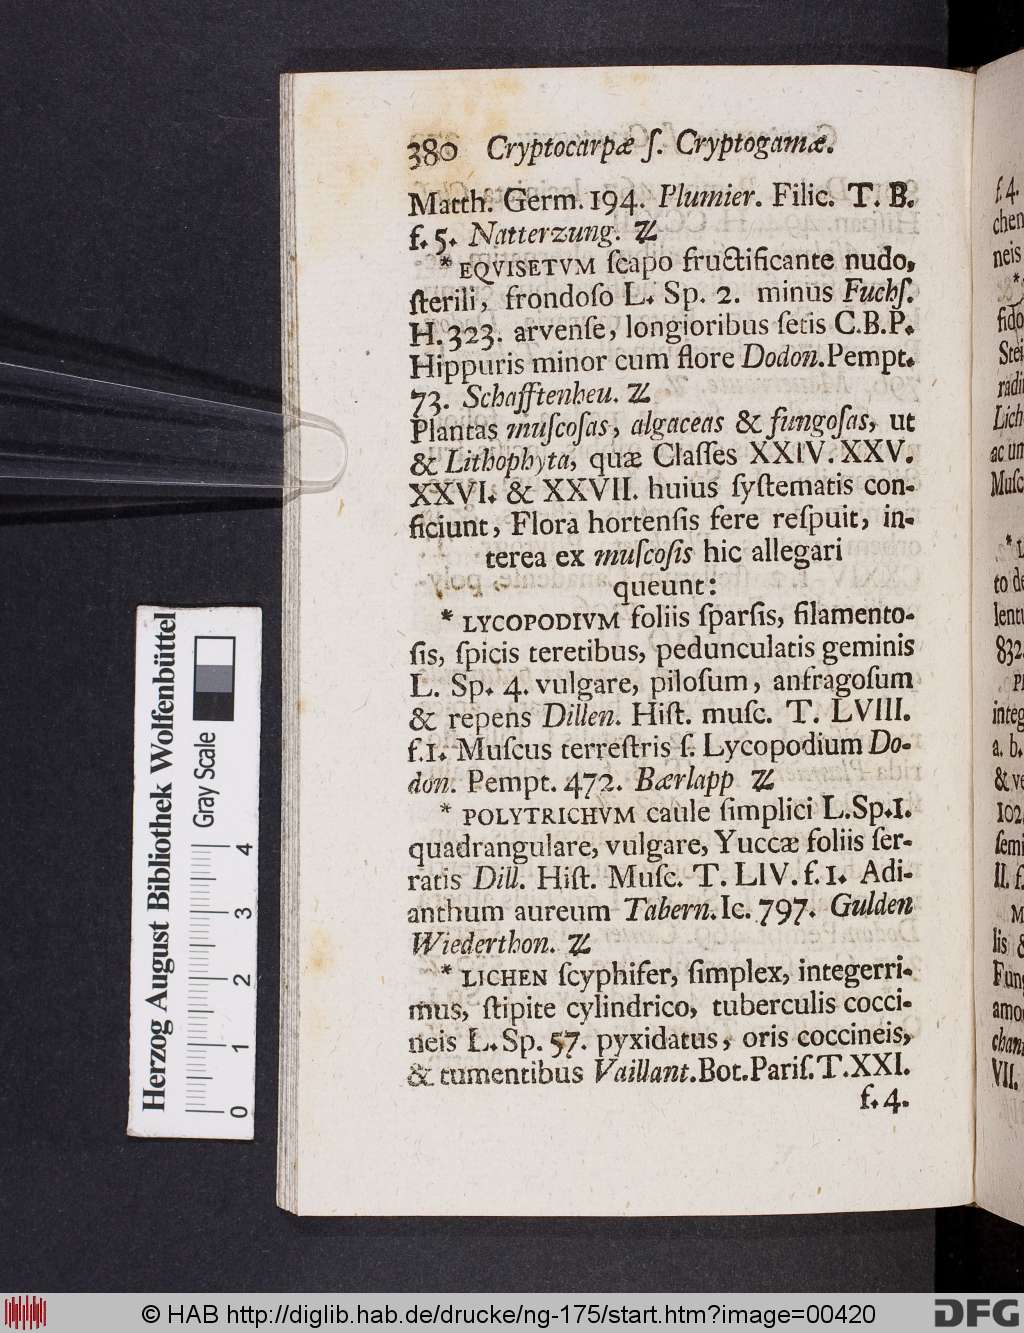 380 Cryptocarpæ ſ. Cryptogamæ.
Matth. Germ. 194. Plumier. Filic. T. B.
f. 5. Natterzung. ♃
* EQVISETVM ſcapo fructificante nudo,
ſterili, frondoſo L. Sp. 2. minus Fuchſ.
H. 323. arvenſe, longioribus ſetis C.B.P.
Hippuris minor cum flore Dodon. Pempt.
73. Schafftenheu. ♃
Plantas muſcoſas, algaceas & fungoſas, ut
& Lithophyta, quæ Claſſes XXIV. XXV.
XXVI. & XXVII. huius ſyſtematis con-
ficiunt, Flora hortenſis fere reſpuit, in-
terea ex muſcoſis hic allegari
queunt:
* LYCOPODIVM foliis ſparſis, filamento-
ſis, ſpicis teretibus, pedunculatis geminis
L. Sp. 4. vulgare, piloſum, anfragoſum
& repens Dillen. Hiſt. muſc. T. LVIII.
f. 1. Muſcus terreſtris ſ. Lycopodium Do-
don. Pempt. 472. Bærlapp ♃
* POLYTRICHVM caule ſimplici L. Sp. I.
quadrangulare, vulgare, Yuccæ foliis ſer-
ratis Dill. Hiſt. Muſc. T. LIV. f. 1. Adi-
anthum aureum Tabern. Ic. 797. Gulden
Wiederthon. ♃
* LICHEN ſcyphifer, ſimplex, integerri-
mus, ſtipite cylindrico, tuberculis cocci-
neis L. Sp. 57. pyxidatus, oris coccineis,
& tumentibus Vaillant. Bot. Pariſ. T. XXI.
f. 4.
f. 4.
chen
neis
fido
Stei
radi
Lich
ac un
Muſc
* L
to de
lent
832.
integ
a. b.
& ve
102.
ſemi
II. f.
M
lis &
Fung
amo
chan
VII.
Herzog August Bibliothek Wolfenbüttel
Gray Scale
0 1 2 3 4
© HAB http://diglib.hab.de/drucke/ng-175/start.htm?image=00420
DFG